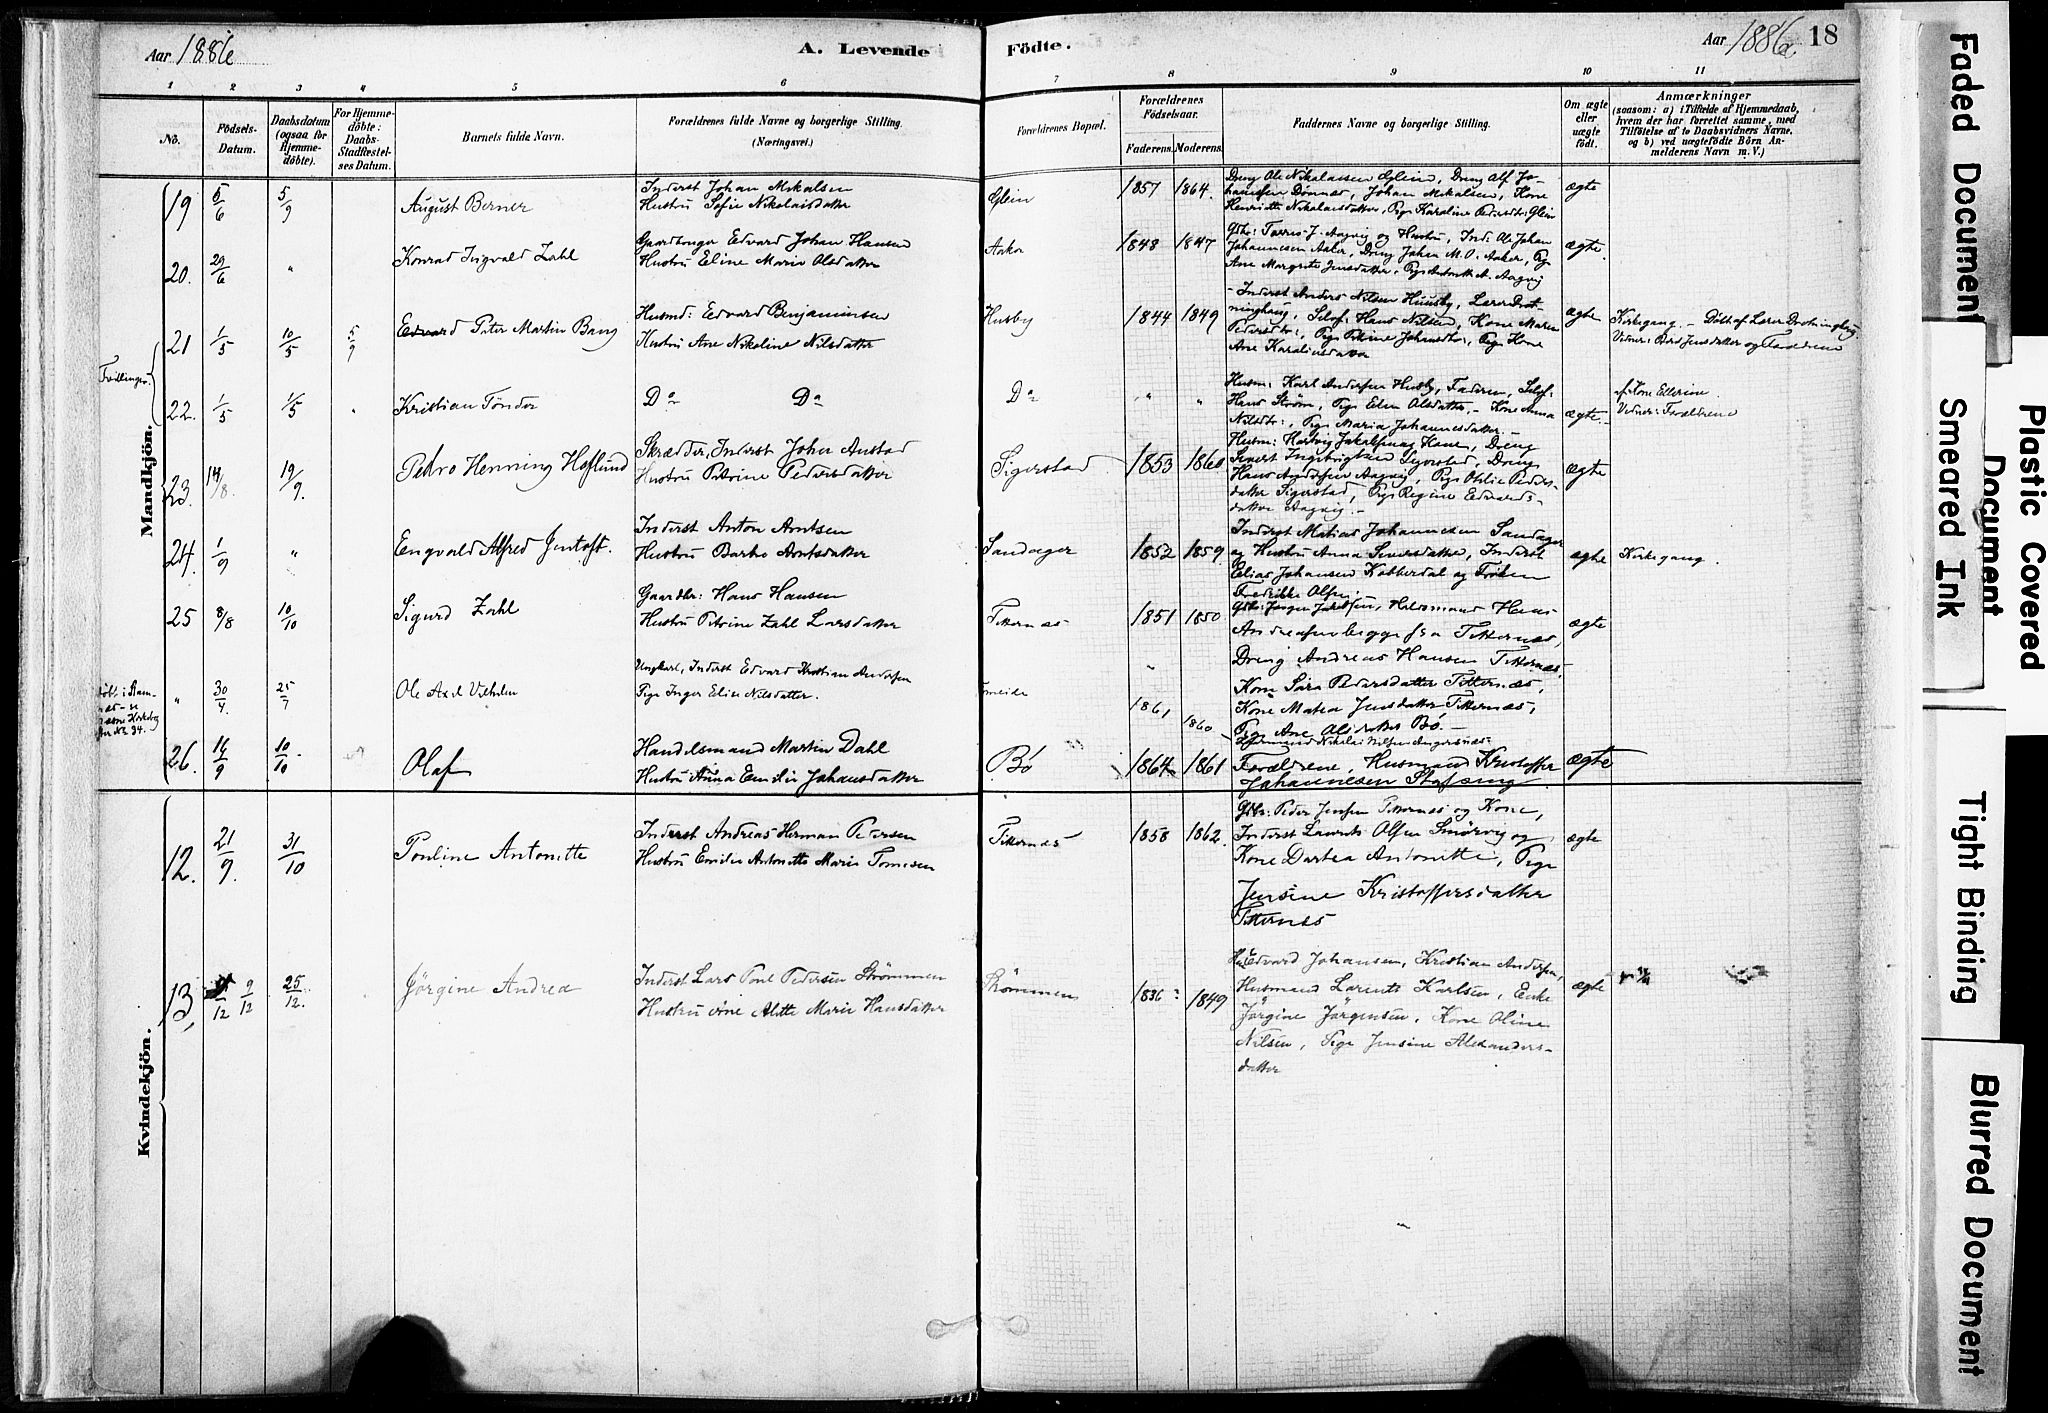 Aar 1886
A. Levende
Födte.
Aar 1886.
18
1 2 3 4 5 6 7 8 9 10 11
No.
Födsels-
Datum.
Daabsdatum
(ogsaa for
Hjemme-
döbte).
For Hjemme-
döbte:
Daabs-
Stadfæstel-
ses Datum.
Barnets fulde Navn.
Forældrenes fulde Navne og borgerlige Stilling.
(Næringsvei.)
Forældrenes Bopæl.
Forældrenes
Födselsaar.
Faderens. Moderens.
Faddernes Navne og borgerlige Stilling.
Om ægte
eller
uægte
födt.
Anmærkninger
(saasom: a) i Tilfælde af Hjemmedaab,
hvem der har forrettet samme, med
Tilföielse af to Daabsvidners Navne,
og b) ved uægtefödte Börn An-
melderens Navn m. V.)
Mandkjön.
19 5/6 5/9 August Berner
Inderst Johan Mikalsen
Hustru Sofie Nikolaisdatter
Glein 1857 1864.
Dreng Ole Nikolaisen Glein, Dreng Alf Jo-
hansen Dønnæs, Johan Mikalsen, Kone
Henriette Nikolaisdatter, Pige Karoline Pedersdtr Glein
ægte
20. 29/6 " Konrad Ingvald Zahl
Gaardbruger Edvard Johan Hansen
Hustru Eline Marie Olsdatter
Aaker 1848 1847
Gbr: Torres J. Aagvig og Hustru, Ind: Ole Johan
Johannesen Aaker, Dreng Johan M. O. Aaker, Pige
Ane Margrete Jensdatter, Pige Antonette A. Aagvig
ægte.
Tvillinger.
21 1/5 10/5 5/9 Edvard Peter Martin Bang
Husmd: Edvard Benjaminsen
Hustru Ane Nikoline Nilsdatter
Husby 1844 1849
Inderst Anders Nilsen Huusby, Lærer Brot-
ninghaug, Selvf: Hans Nilsen, Kone Maren
Pedersdtr:, Pige Petrine Johansdtr:, Pige Kone
Ane Karoliusdatter
ægte
Kirkegang. - Døbt af Lærer
22. 1/5 1/5 " Kristian Tönder
Do Do
Do " "
Husm: Karl Andersen Husby, Faderen, Selvf:
Hans Strøm, Pige Elen Olsdatter. - Kone Anna
Nilsdtr:, Pige Maria Johannesdatter. -
ægte. -
af Kone Ellerine
Vidner: Forældrene
23. 14/8. 19/9. Pedro Henning Høflund
Skrædder, Inderst Johan Austad
Hustru Petrine Pedersdatter
Sigerstad 1853 1860
Husm: Hartvig Jakobsen og Kone, Dreng
Sivert Ingebrigtsen Sigerstad, Dreng
Hans Andersen Aagvig, Pige Otelie Peders-
datter Sigerstad, Pige Regine Edvards-
datter Aagvig. -
ægte
24. 1/9 " Engvald Alfred Jentoft.
Inderst Anton Arntsen
Hustru Barbo Arntsdatter
Sandager 1852 1859.
Inderst Matias Johannesen Sandager
og Hustru Anna Siversdatter, Inderst
Elias Johansen Kobberdal og Frøken
Fredrikke Olsen.
ægte Kirkegang.
25 8/8 10/10 Sigurd Zahl
Gaardbr: Hans Hansen
Hustru Petrine Zahl Larsdatter
Titternæs 1851 1850
Gbr: Jørgen Jakobsen, Husmand Hans
Andreasen begge fra Titternæs,
Dreng Andreas Hansen Titternæs,
Kone Sara Pedersdatter Titternæs,
Kone Matea Jensdatter Titternæs,
Pige Ane Olsdatter Bö. -
ægte
" 30/4. 25/7 Ole Axel Vilhelm
Ungkarl, Inderst Edvard Kristian Andersen
Pige Inger Elise Nilsdatter.
1861 1860
26. 16/9 10/10 Olaf
Handelsmand Martin Dahl
Hustru Anna Emilie Johansdatter
Bö 1864 1861
Forældrene, Husmand Kristoffer
Johannesen
ægte
Kvindekjön.
12. 21/9. 31/10 Pouline Antonette
Inderst Andreas Herman Petersen
Hustru Emilie Antonette Marie Tomesen
Titternæs 1858 1862.
Gbr: Peder Jensen Titternæs og Kone,
Inderst Laurits Olsen Smörvig og
Kone Dortea Antonette, Pige
Jensine Kristoffersdatter
Titternæs
ægte
13, 9/12 25/12. Jörgine Andrea
Inderst Lars Povl Pedersen Strömmen
Hustru Ane Alette Marie Hansdatter
Strömmen 1836 1849
Edvard Johansen, Kristian Andersen,
Husmand Lorents Karlsen, Enke
Jörgine Jörgensen, Kone Oline
Nilsen, Pige Jensine Alexanders-
datter
ægte
Faded Document
Plastic Covered
Document
Smeared Ink
Tight Binding
Blurred Document